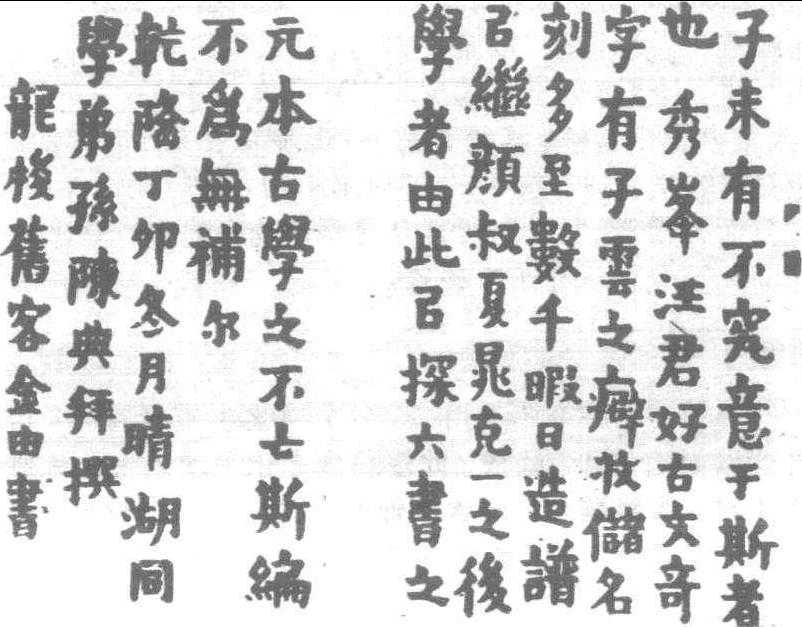 子未有不究意于斯者
也秀峯汪君好古文奇
字有子雲之癖牧儲名
刻多至數千暇日造譜
㠯繼顏叔夏晁克一之後
學者由此㠯探六書之
元本古學之不亡斯編
不爲無補尔
乾隆丁卯冬月晴湖同
學弟孫陳典拜撰
龍梭舊客金由書